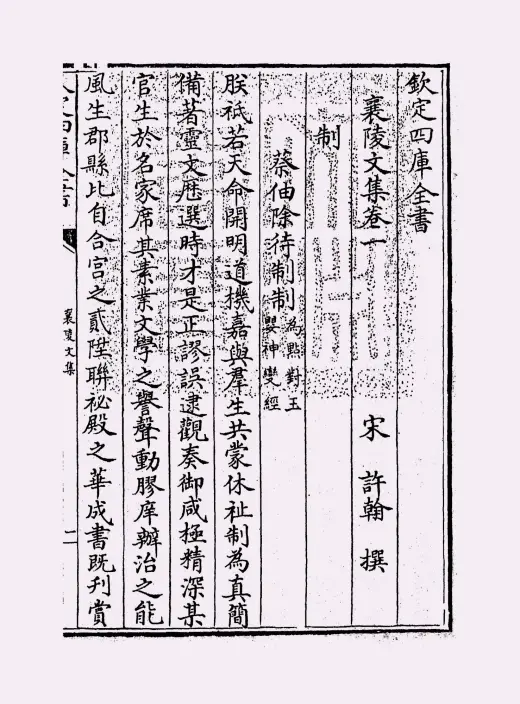 欽定四庫全書
襄陵文集卷一
宋 許翰 撰
制
蔡伷除待制制
為點對玉
嬰神變經
朕祇若天命開明道機嘉與羣生共蒙休祉制為真簡
備著靈文歴選時才是正謬誤逮觀奏御咸極精深某
官生於名家席其素業文學之譽聲動膠庠辦治之能
風生郡縣比自合宫之貳陞聯祕殿之華成書既刋賞
襄陵文集